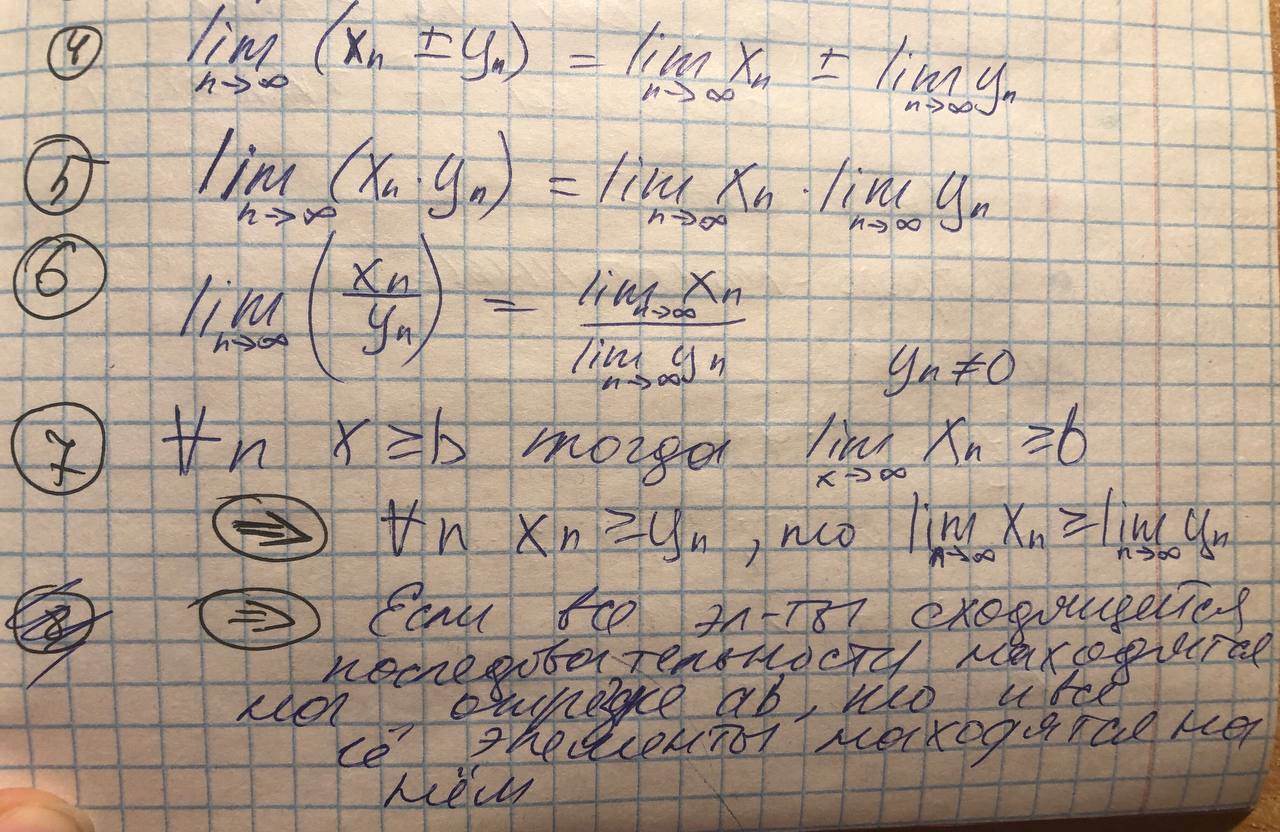 ④ lim n→∞ (xₙ ± yₙ) = lim n→∞ xₙ ± lim n→∞ yₙ
⑤ lim n→∞ (xₙ · yₙ) = lim n→∞ xₙ · lim n→∞ yₙ
⑥ lim n→∞ (xₙ / yₙ) = lim n→∞ xₙ / lim n→∞ yₙ yₙ ≠ 0
⑦ ∀n x ≥ b тогда lim x→∞ xₙ ≥ b
⇒ ∀n xₙ ≥ yₙ, то lim n→∞ xₙ ≥ lim n→∞ yₙ
⇒ Если все эл-ты сходящейся
последовательности находятся
на отрезке ab, то и все
её элементы находятся на
нём